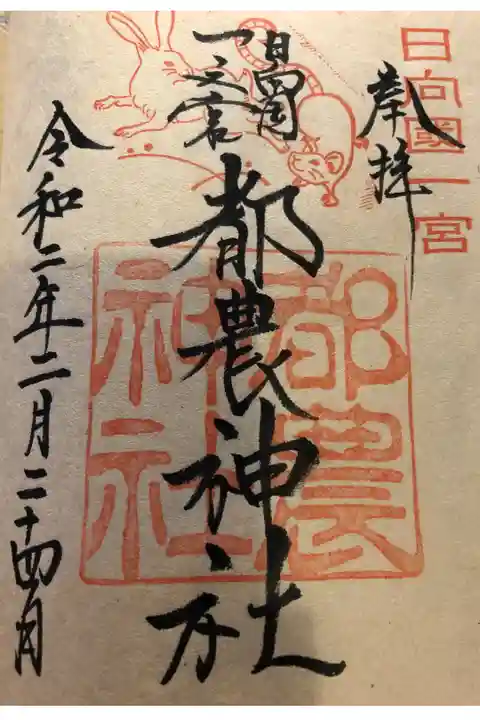 日向國一宮
奉拝
日向国
一之宮
都農神社
都農
神社
令和二年二月二十四日